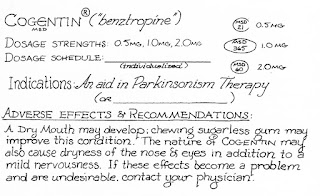 COGENTIN® ("benztropine") MSD 21 0.5 MG
MSD
DOSAGE STRENGTHS: 0.5MG, 1.0MG, 2.0MG MSD 365 1.0 MG
DOSAGE SCHEDULE:
(individualized) MSD 60 2.0MG
Indications: An aid in Parkinsonism Therapy
(OR )
ADVERSE EFFECTS & RECOMMENDATIONS:
A Dry Mouth may develop; chewing sugarless gum may
improve this condition. The nature of COGENTIN may
also cause dryness of the nose & eyes in addition to a
mild nervousness. If these effects become a problem
and are undesirable, contact your physician.